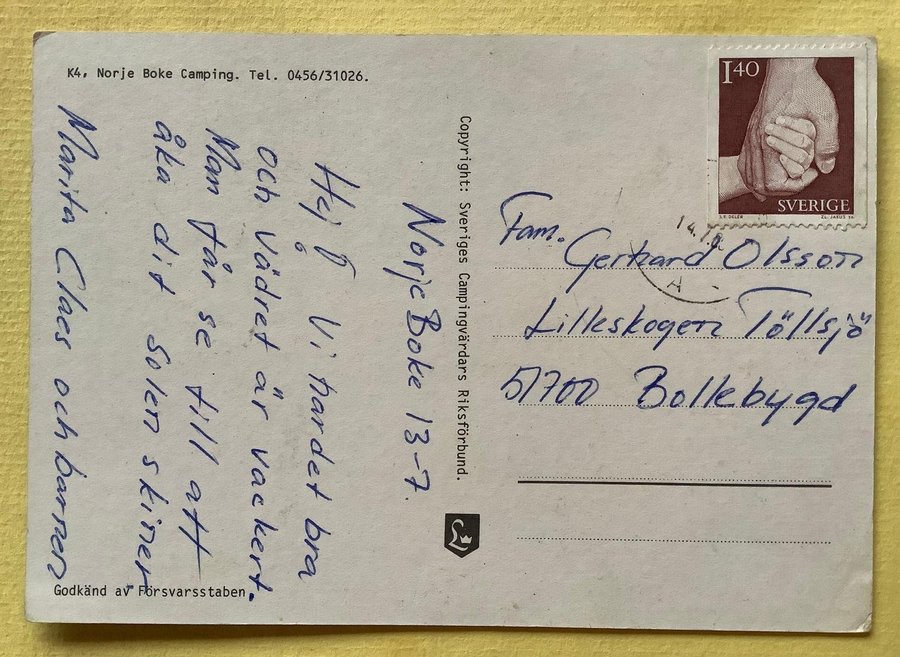 K4, Norje Boke Camping. Tel. 0456/31026.
Norje Boke 13-7.
Hej! Vi har det bra
och vädret är vackert.
Man får se till att
åka dit solen skiner
Marita Claes och barnen
Godkänd av Försvarsstaben.
Copyright: Sveriges Campingvärdars Riksförbund.
L
1 40
SVERIGE
Fam.
Gerhard Olsson
Lilleskogen Töllsjö
51700 Bollebygd